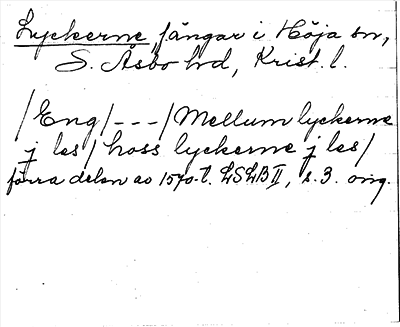 Lyckerne, ängar i Höja sn,
S. Åsbo hd, Krist. l.
/Eng/---/Mellum lyckerne
j les/hoss lyckerne j les/
förra delen av 1570-t. LSLB II, s. 3. orig.